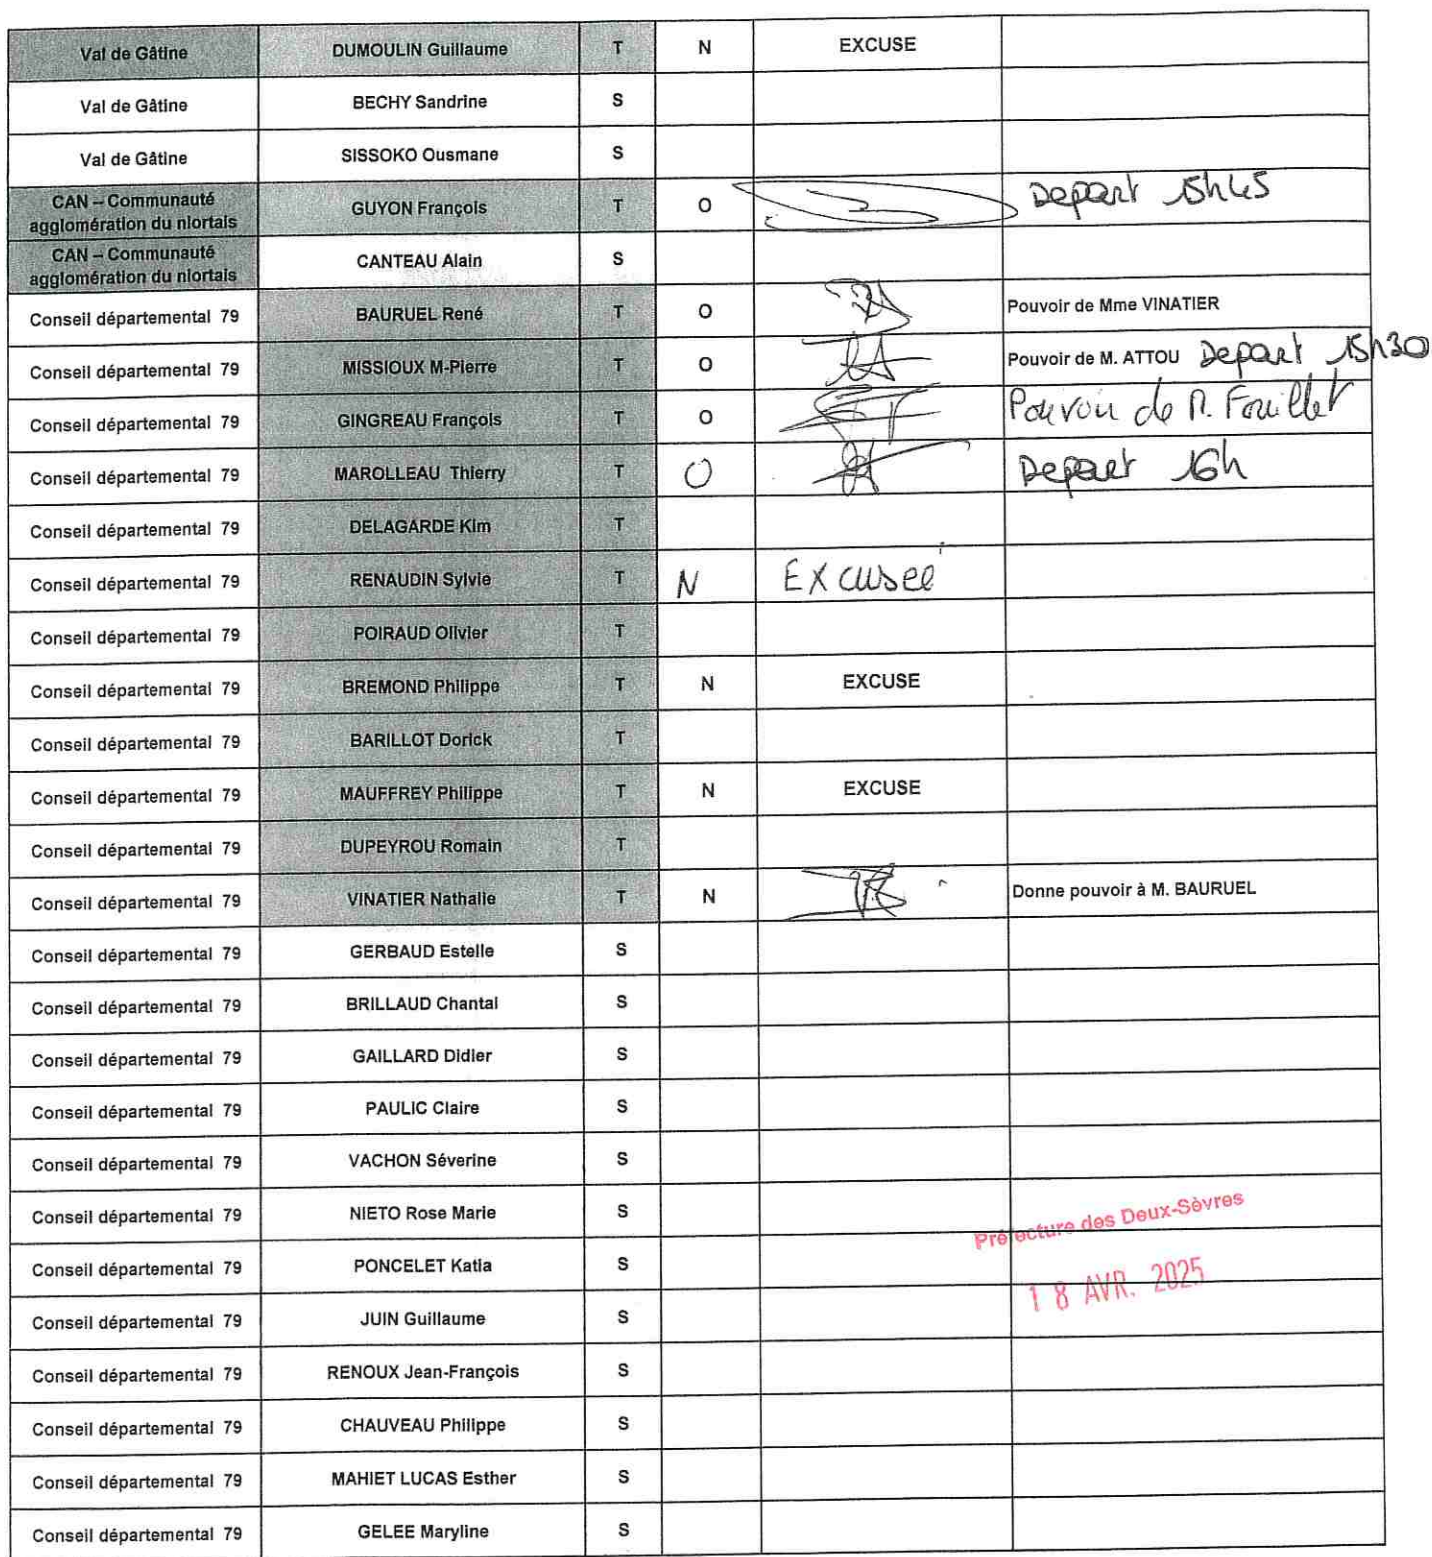 Val de Gâtine DUMOULIN Guillaume T N EXCUSE
Val de Gâtine BECHY Sandrine S
Val de Gâtine SISSOKO Ousmane S
CAN – Communauté
agglomération du niortais GUYON François T O Depart 15h45
CAN – Communauté
agglomération du niortais CANTEAU Alain S
Conseil départemental 79 BAURUEL René T O Pouvoir de Mme VINATIER
Conseil départemental 79 MISSIOUX M-Pierre T O Pouvoir de M. ATTOU Depart 15h30
Conseil départemental 79 GINGREAU François T O Pouvoir de M. Fouillet
Conseil départemental 79 MAROLLEAU Thierry T O Depart 16h
Conseil départemental 79 DELAGARDE Kim T
Conseil départemental 79 RENAUDIN Sylvie T N Excuseé
Conseil départemental 79 POIRAUD Olivier T
Conseil départemental 79 BREMOND Philippe T N EXCUSE
Conseil départemental 79 BARILLOT Dorick T
Conseil départemental 79 MAUFFREY Philippe T N EXCUSE
Conseil départemental 79 DUPEYROU Romain T
Conseil départemental 79 VINATIER Nathalie T N Donne pouvoir à M. BAURUEL
Conseil départemental 79 GERBAUD Estelle S
Conseil départemental 79 BRILLAUD Chantal S
Conseil départemental 79 GAILLARD Didier S
Conseil départemental 79 PAULIC Claire S
Conseil départemental 79 VACHON Séverine S
Conseil départemental 79 NIETO Rose Marie S
Préfecture des Deux-Sèvres
Conseil départemental 79 PONCELET Katia S
18 AVR. 2025
Conseil départemental 79 JUIN Guillaume S
Conseil départemental 79 RENOUX Jean-François S
Conseil départemental 79 CHAUVEAU Philippe S
Conseil départemental 79 MAHIET LUCAS Esther S
Conseil départemental 79 GELEE Maryline S